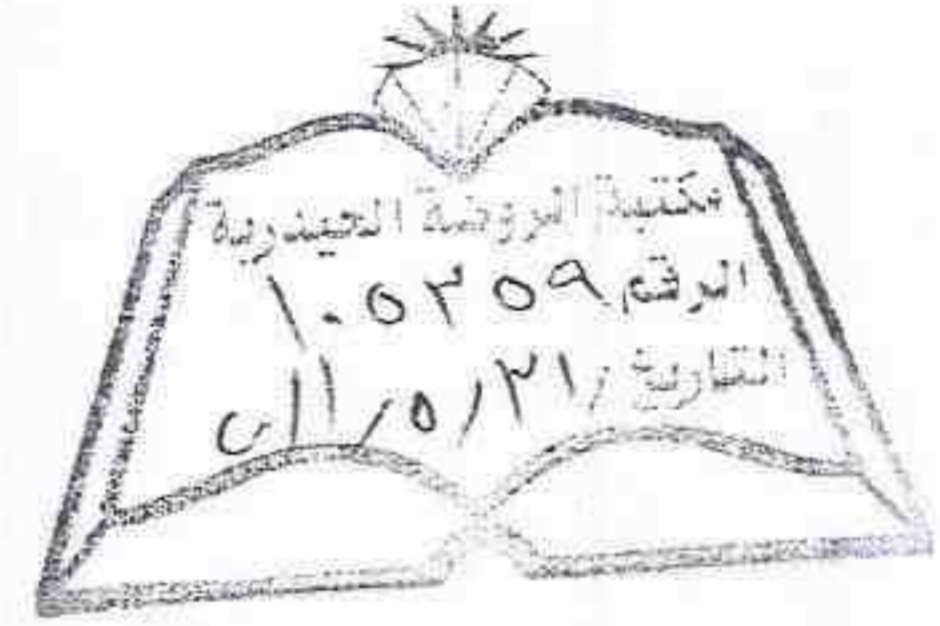 مكتبة الروضة الحيدرية
الرقم ١٠٥٣٥٩
التاريخ / ٢١ / ٥ /